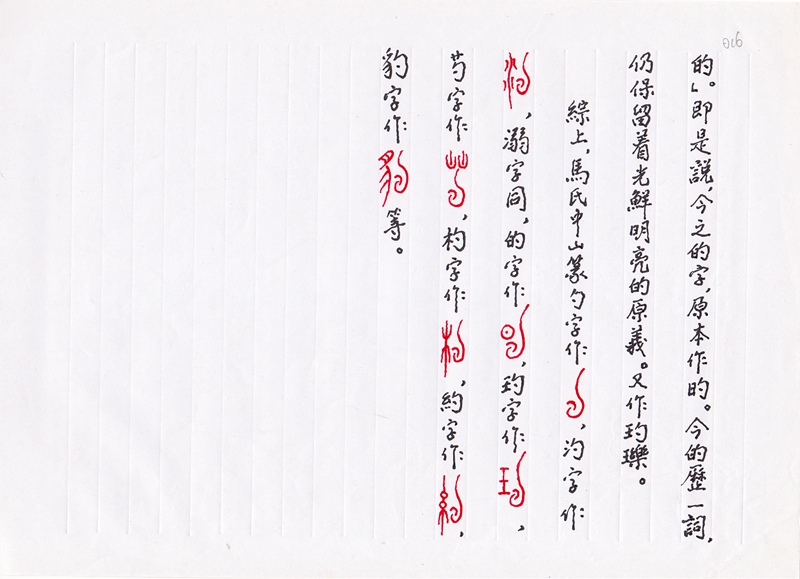 016
的。」即是說，今之的字，原本作旳。今的歷一詞，
仍保留着光鮮明亮的原義。又作玓瓅。
綜上，馬氏中山篆勺字作，汋字作
，溺字同，的字作，玓字作，
芍字作，杓字作，約字作，
豹字作等。